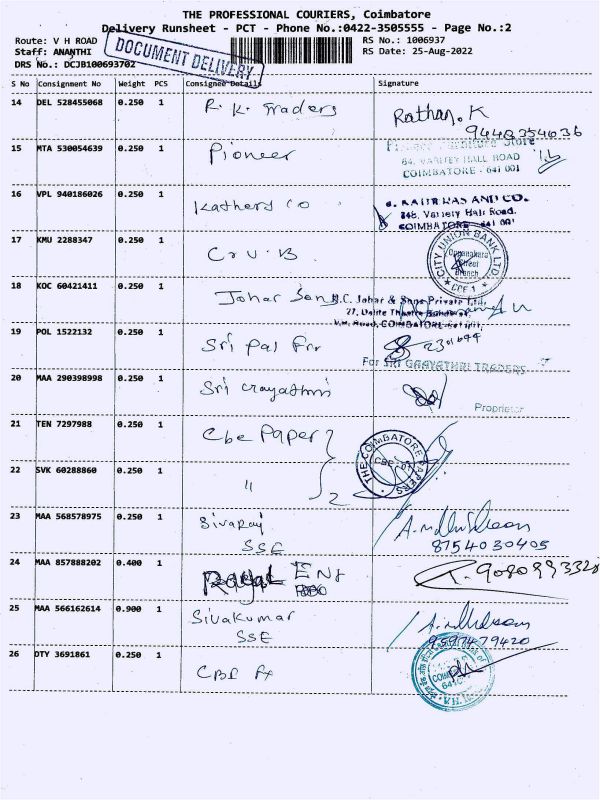 THE PROFESSIONAL COURIERS, Coimbatore
Delivery Runsheet - PCT - Phone No.:0422-3505555 - Page No.:2
Route: V H ROAD RS No.: 1006937
Staff: ANANTHI RS Date: 25-Aug-2022
DOCUMENT DELIVERY
DRS No.: DCJB100693702
S No Consignment No Weight PCS Consignee Details Signature
14 DEL 528455068 0.250 1 R.K. Traders Rathan.K
15 MTA 530054639 0.250 1 Pioneer
Furniture Store
84, VARITEY HALL ROAD
COIMBATORE - 641 001
16 VPL 940186026 0.250 1 Kathers Co
AND CO.
348, Variety Hall Road.
COIMBATORE - 641 001
17 KMU 2288347 0.250 1 C.U.B
CITY UNION BANK LTD.
Oppanakara Street Branch
CPE 1
18 KOC 60421411 0.250 1 Johar Sons
N.C. Johar & Sons Private Ltd.
27, Delite Theatre
V.H. Road, COIMBATORE
19 POL 1522132 0.250 1 Sri Pal
For SRI GAAYATHRI TRADERS
20 MAA 290398998 0.250 1 Sri Gayathri
Proprietor
21 TEN 7297988 0.250 1 Cbe Paper
THE COIMBATORE PAPERS
CBE-01
22 SVK 60288860 0.250 1 " 2
23 MAA 568578975 0.250 1 Sivaraj
SSE
8754030405
24 MAA 857888202 0.400 1 Royal Ent
25 MAA 566162614 0.900 1 Sivakumar
SSE
9597479420
26 DTY 3691861 0.250 1